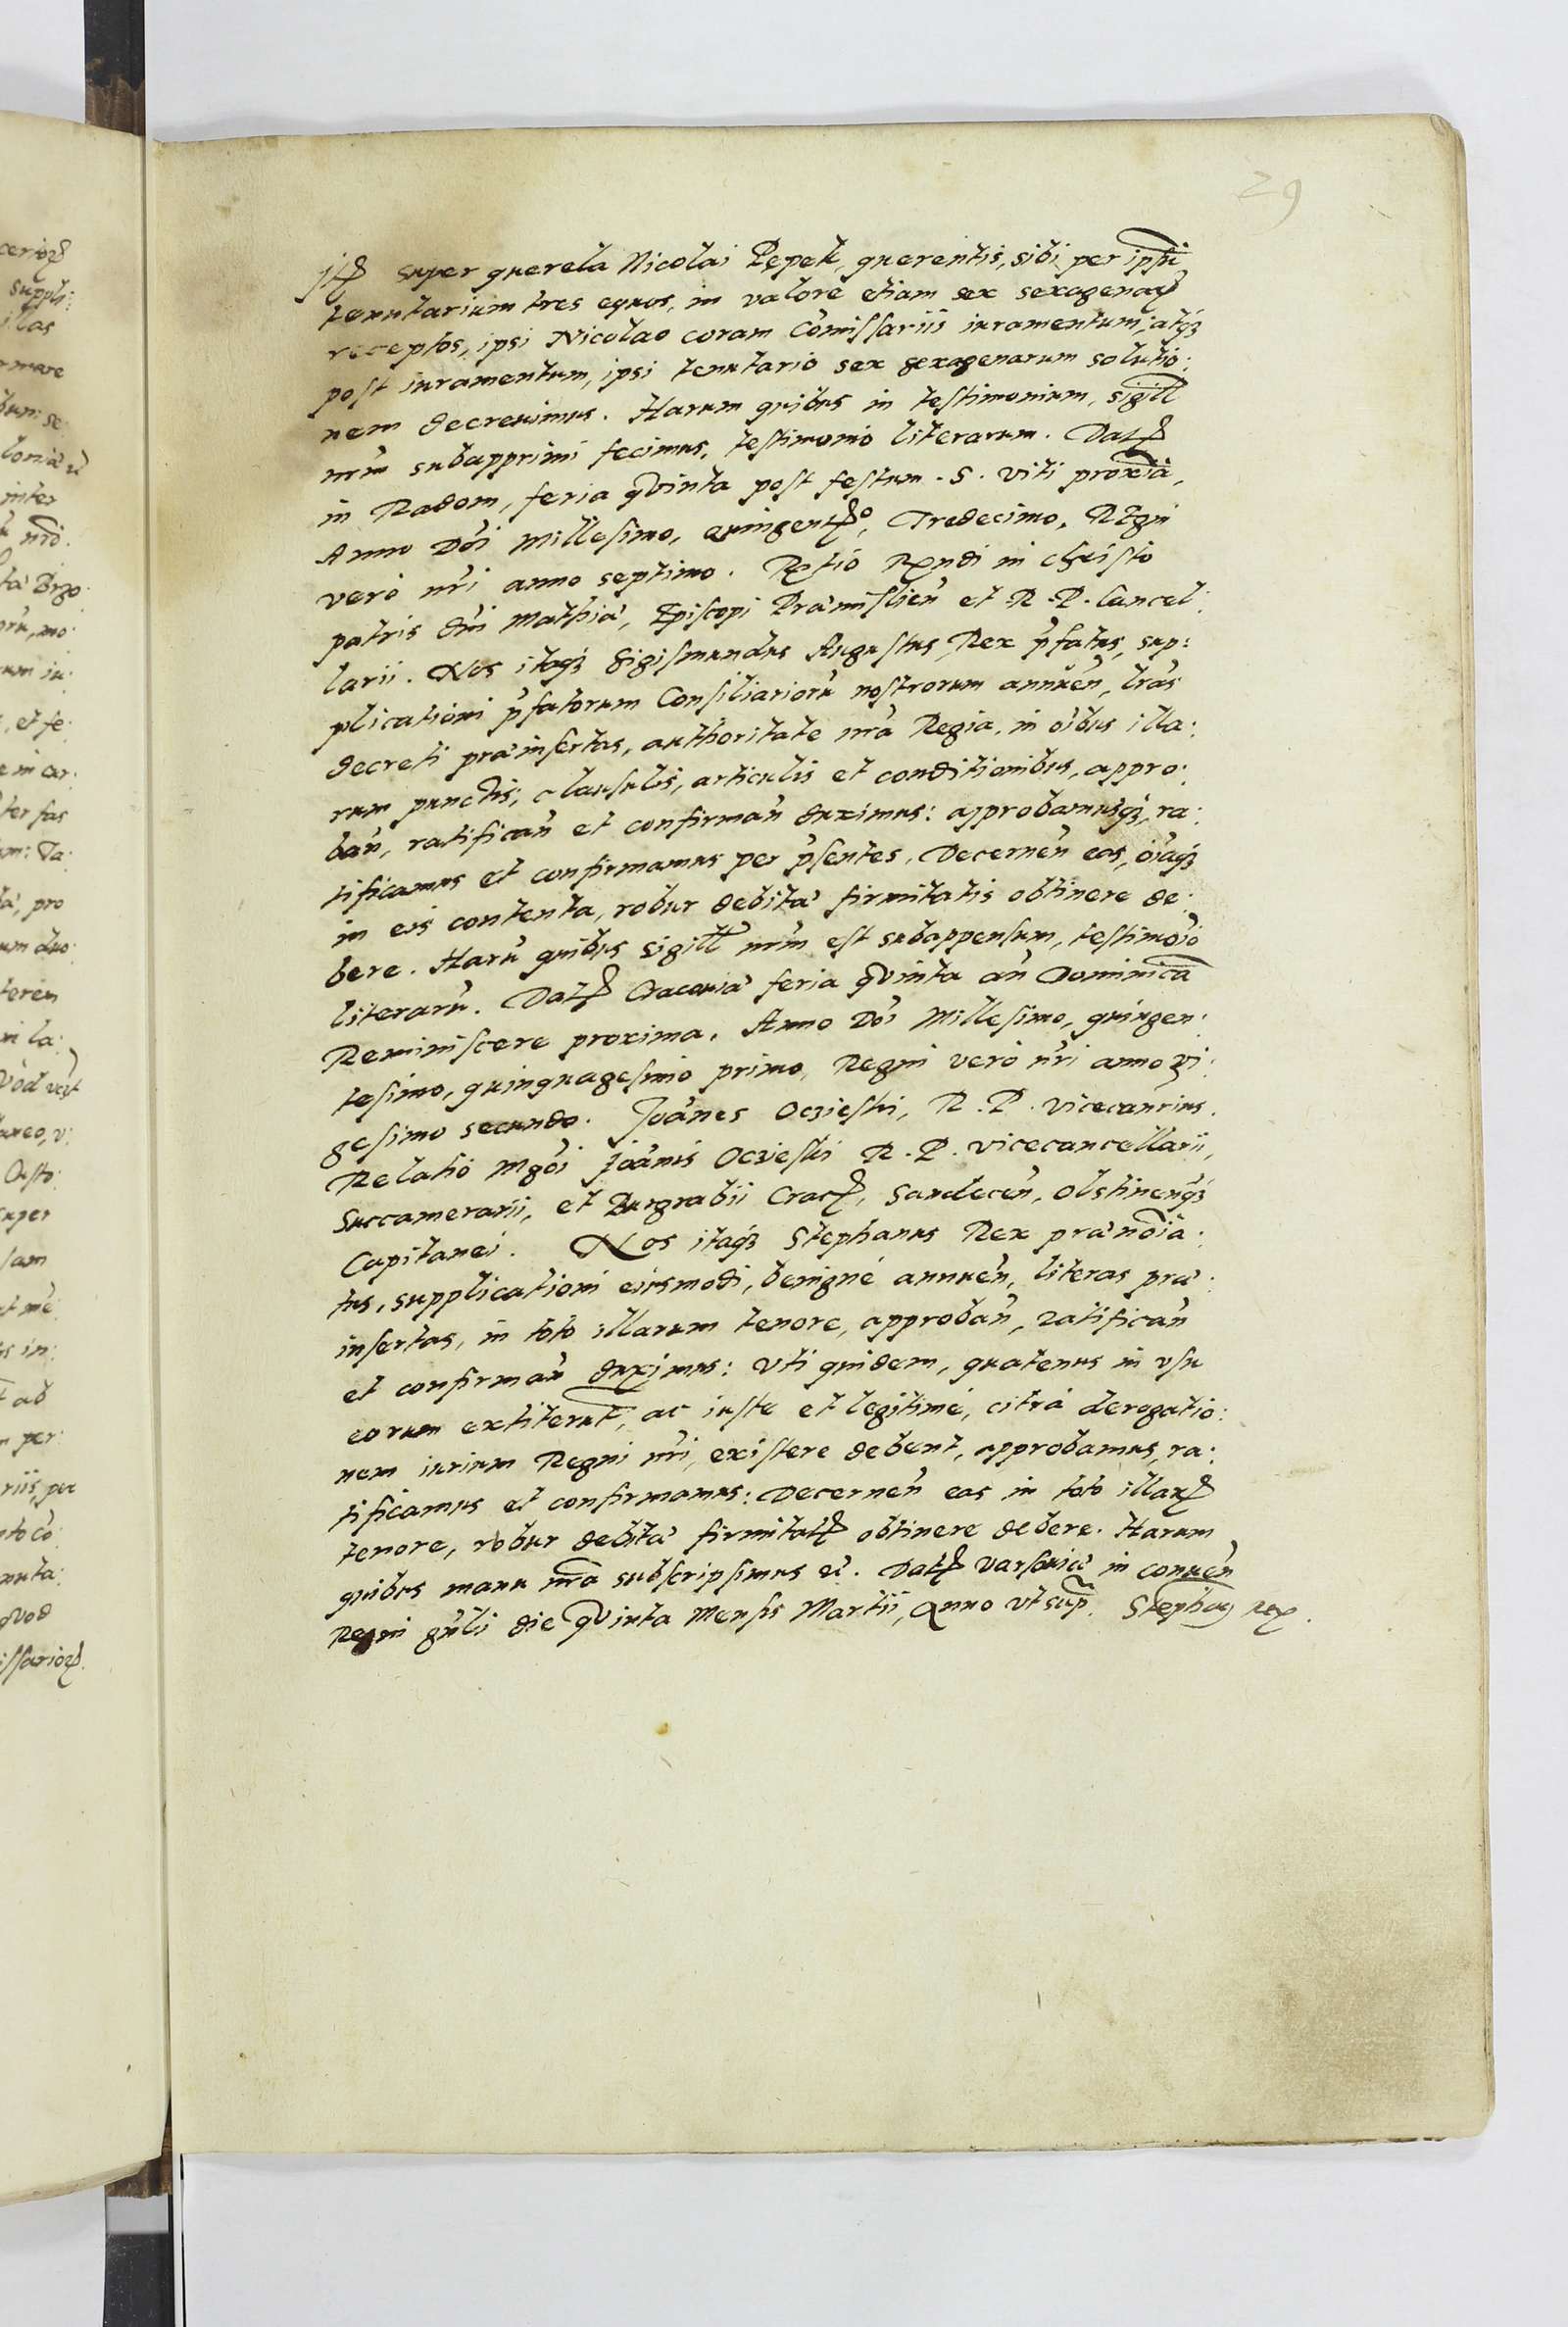 29
Itꝭ super querela Nicolai Pępek, querentis, sibi per ipsū
tenutarium tres equos, in valore etiam sex sexagenaꝝ
receptos, ipsi Nicolao coram Cōmissariis iuramentum, atqꝫ
post iuramentum, ipsi tenutario sex sexagenarum solutio:
nem decreuimus. Harum quibus in testimonium, sigill
nr̄m subapprimi fecimus, testimonio literarum. Datꝭ
in Radom, feria qVinta post festum .S. Viti proxīa,
Anno Dōi Millesimo, quingentꝭo, Tredecimo, REgni
verò nr̄i anno septimo. Rƚtio Rƚndi in Christo
patris dn̄i Mathiæ, Episcopi Præmislien̄ et .R.P. Cancel:
larii. Nos itaqꝫ Sigismundus Augustus Rex p̄fatus, sup:
plicationi p̄fatorum Consiliariorū nostrorum annuen̄, lr̄as
decreti præinsertas, authoritate nr̄a Regia, in oībus illa:
rum punctis, clausulis, articulis et conditionibus, appro:
ban̄, ratifican̄ et confirman̄ duximus: approbamusqꝫ, ra:
tificamus et confirmamus per p̄sentes, Decernen̄ eas, oīaqꝫ
in eis contenta, robur debitæ firmitatis obtinere de:
bere. Harū quibus sigill nr̄m est subappensum, testimōio
literarū. Datꝭ Cracouiæ feria qVinta an̄ Dominicā
Reminiscere proxima, Anno Dōi Millesimo, quingen:
tesimo, quinquagesimo primo, Regni verò nr̄i anno vi:
gesimo secundo. Joānes Oczieski, R.P. vicecanrius.
Relatio Mgōi Joānis Oczieski R.P. vicecancellarii,
Succamerarii, et Burgrabii Cracꝭ, Sandecen̄, Olstinenqꝫ
Capitanei. Nos itaqꝫ Stephanus Rex prænoīa:
tus, supplicationi eiusmodi, benignè annuen̄, literas præ:
insertas, in toto illarum tenore, approban̄, ratifican̄
et confirman̄ duximus: Vti quidem, quatenus in vsu
eorum extiterūt, ac iuste et legitimè, citrà derogatio:
nem iurium Regni nr̄i, existere debent, approbamus, ra:
tificamus et confirmamus: Decernen̄ eas in toto illaꝝ
tenore, robur debitæ firmitatꝭ obtinere debere. Harum
quibus manu nr̄a subscripsimus ec̄. Datꝭ Varsouiæ in conuen̄
Regni gn̄li die qVinta Mensis Martii, Anno Vt sup̄. Stephaꝯ Rex.